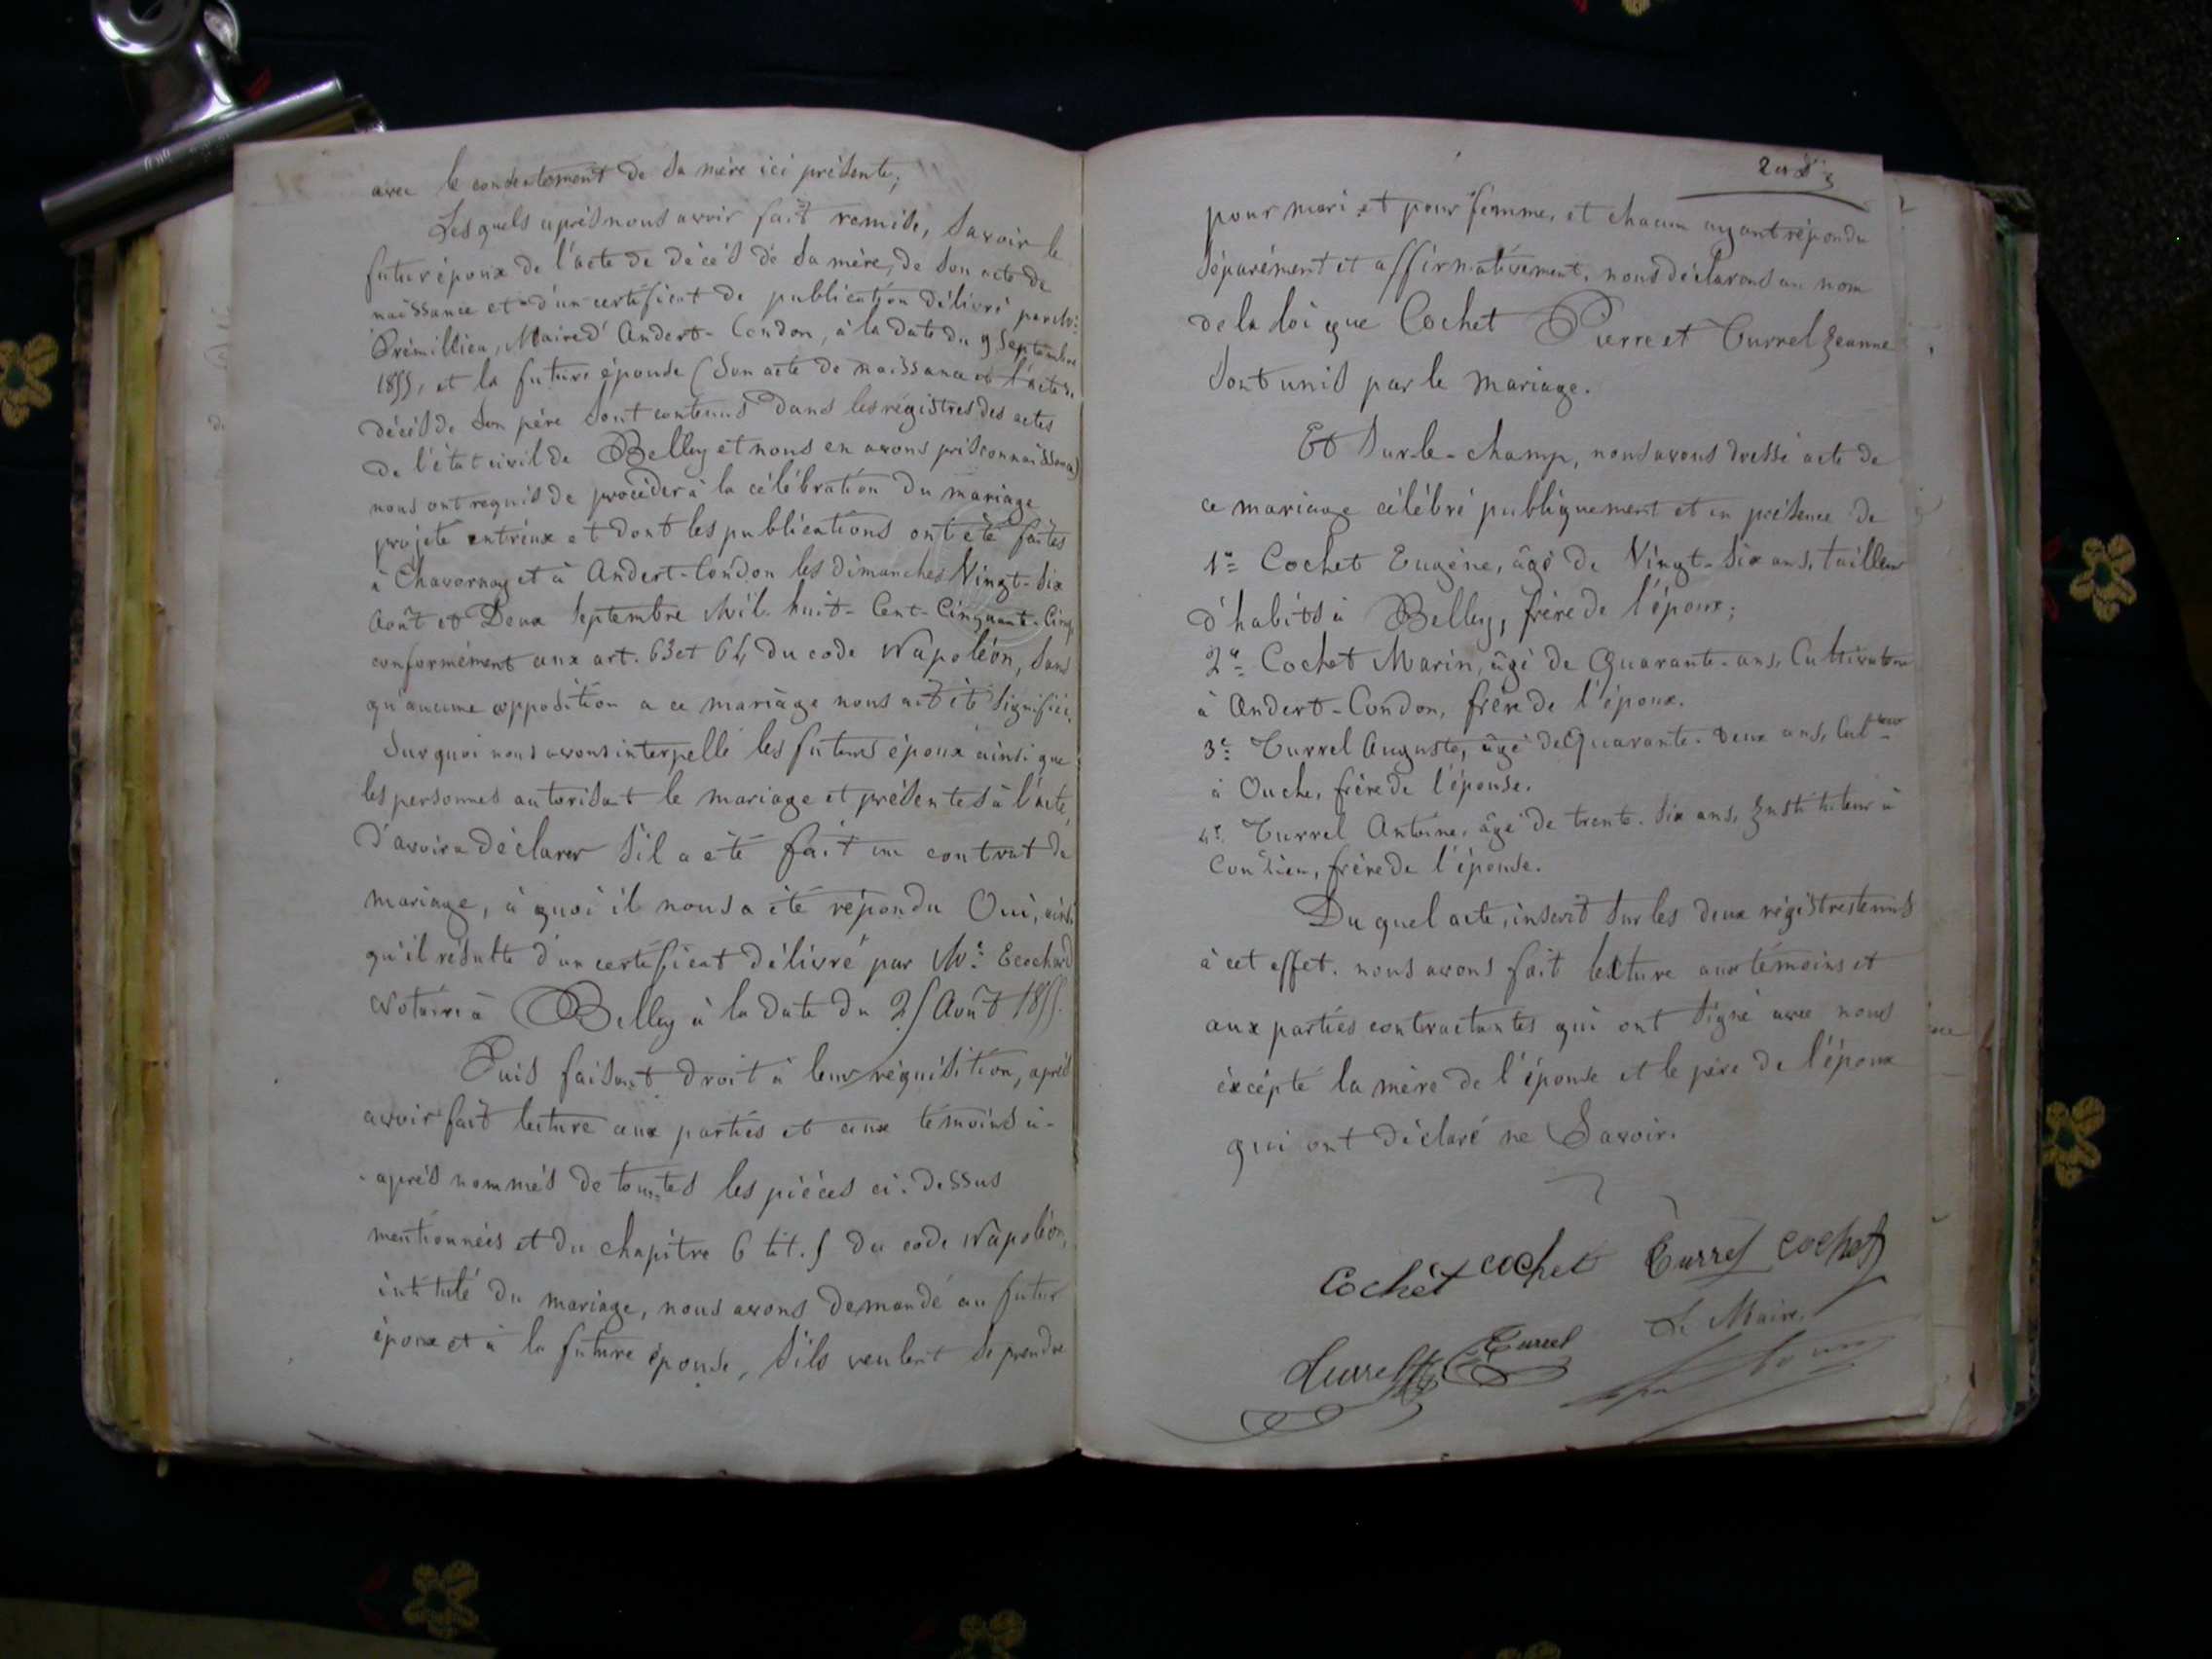 avec le consentement de sa mère ici présente;
Lesquels après nous avoir fait remise, savoir le
futur époux de l'acte de décès de sa mère, de son acte de
naissance et d'un certificat de publication délivré par Mr.
Prémillieu, Maire d'Andert-Condon, à la date du 9 Septembre
1855, et la future épouse (son acte de naissance et l'acte de
décès de son père sont contenus dans les régistres des actes
de l'état civil de Belley et nous en avons pris connaissance)
nous ont requis de procéder à la célébration du mariage
projeté entr'eux et dont les publications ont été faites
à Chavornay et à Andert-Condon les dimanches Vingt-six
Août et Deux Septembre Mil-huit-Cent-Cinquante-Cinq
conformément aux art. 63 et 64 du code Napoléon, sans
qu'aucune opposition a ce mariage nous ait été signifiée.
Sur quoi nous avons interpellé les futurs époux ainsi que
les personnes autorisant le mariage et présentes à l'acte,
d'avoir a déclarer s'il a été fait un contrat de
mariage, à quoi il nous a été répondu Oui, ainsi
qu'il résulte d'un certificat délivré par Me. Ecochard
Notaire à Belley à la date du 25 Août 1855.
Puis faisant droit à leur réquisition, après
avoir fait lecture aux parties et aux témoins ci-
-après nommés de toutes les pièces ci-dessus
mentionnées et du chapitre 6 tit. 5 du code Napoléon,
intitulé du mariage, nous avons demandé au futur
époux et à la future épouse, s'ils veulent se prendre
pour mari et pour femme, et chacun ayant répondu
séparément et affirmativement, nous déclarons au nom
de la loi que Cochet Pierre et Turrel Jeanne
sont unis par le mariage.
Et sur-le-champ, nous avons dressé acte de
ce mariage célébré publiquement et en présence de
1° Cochet Eugène, âgé de Vingt-six ans, tailleur
d'habits à Belley, frère de l'époux;
2° Cochet Marin, âgé de Quarante-ans, Cultivateur
à Andert-Condon, frère de l'époux.
3° Turrel Auguste, âgé de Quarante-deux ans, Cult-teur
à Ouche, frère de l'épouse.
4° Turrel Antoine, âgé de trente-six ans, Instituteur à
frère de l'épouse.
Du quel acte, inscrit sur les deux régistres tenus
à cet effet, nous avons fait lecture aux témoins et
aux parties contractantes qui ont signé avec nous
excépté la mère de l'épouse et le père de l'époux
qui ont déclaré ne Savoir.
Cochet cochet Turrel cochet
Turrel Turrel Le Maire,